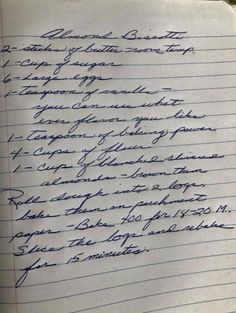 Almond Biscotti
2- sticks of butter - room temp.
1- cup of sugar
6- large eggs
1- teaspoon of vanilla -
you can use what
ever flavor you like
1- Teaspoon of baking power
4- Cups of flour
1- Cup of blanched slivered
almonds - brown them
Roll dough into 2 logs,
bake them on parchment
paper - Bake 400 for 18-20 M.
Slice the logs and rebake
for 15 minutes.